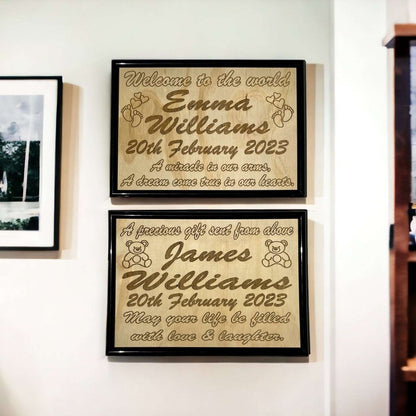 Welcome to the world
Emma
Williams
20th February 2023
A miracle in our arms,
A dream come true in our hearts.
A precious gift sent from above
James
Williams
20th February 2023
May your life be filled
with love & laughter.